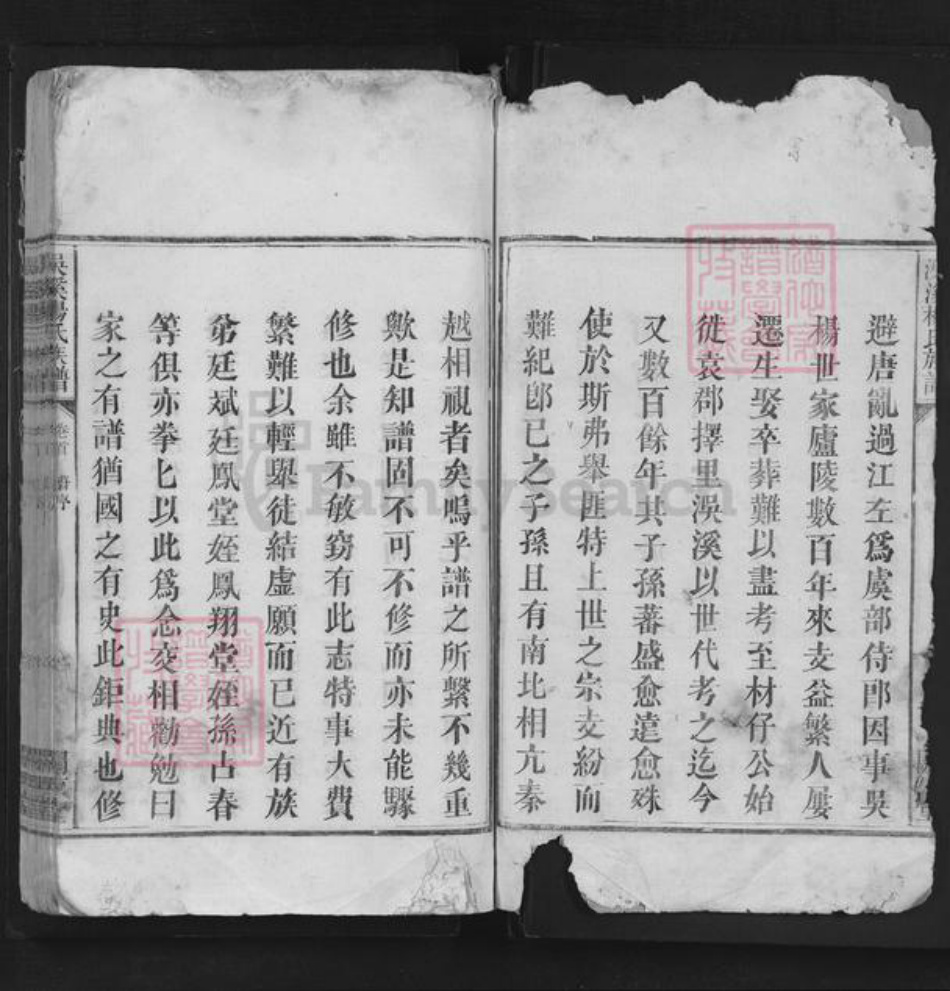 避唐亂過江左爲虞部侍郎因事吳
楊世家廬陵數百年來支益繁人屢
遷生娶卒葬難以盡考至材仔公始
徙袁郡擇里淏溪以世代考之迄今
又數百餘年其子孫蕃盛愈遠愈殊
使於斯弗舉匪特上世之宗支紛而
難紀卽已之子孫且有南北相亢秦
越相視者矣嗚乎譜之所繫不幾重
歟是知譜固不可不修而亦未能驟
修也余雖不敏竊有此志特事大費
繁難以輕舉徒結虛願而已近有族
弟廷斌廷鳳堂姪鳳翔堂姪孫占春
等俱亦拳匕以此爲念交相勸勉曰
家之有譜猶國之有史此鉅典也修
氏族譜
卷首
FamilySearch